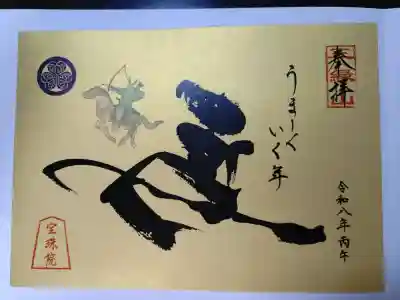 奉拝
うまーく
いく年
令和八年 丙午
宝珠院